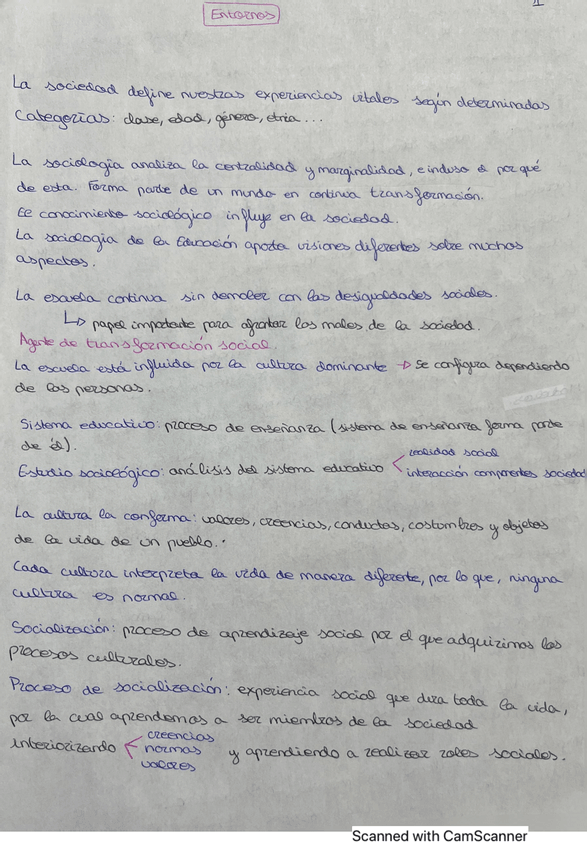 1
Entornos
La sociedad define nuestras experiencias vitales según determinadas
categorías: clase, edad, género, etnia...
La sociología analiza la centralidad y marginalidad, e incluso el por qué
de esta. Forma parte de un mundo en continua transformación.
El conocimiento sociológico influye en la sociedad.
La sociología de la Educación aporta visiones diferentes sobre muchos
aspectos.
La escuela continua sin demoler con las desigualdades sociales.
↳ papel importante para afrontar los males de la sociedad.
Agente de transformación social.
La escuela está influida por la cultura dominante → Se configura dependiendo
de las personas.
Sistema educativo: proceso de enseñanza (sistema de enseñanza forma parte
de él).
Estudio sociológico: análisis del sistema educativo < realidad social
interacción componentes sociedad
La cultura la conforma: valores, creencias, conductas, costumbres y objetos
de la vida de un pueblo.
Cada cultura interpreta la vida de manera diferente, por lo que, ninguna
cultura es normal.
Socialización: proceso de aprendizaje social por el que adquirimos los
procesos culturales.
Proceso de socialización: experiencia social que dura toda la vida,
por la cual aprendemos a ser miembros de la sociedad
interiorizando < creencias
normas
valores
y aprendiendo a realizar roles sociales.
Scanned with CamScanner